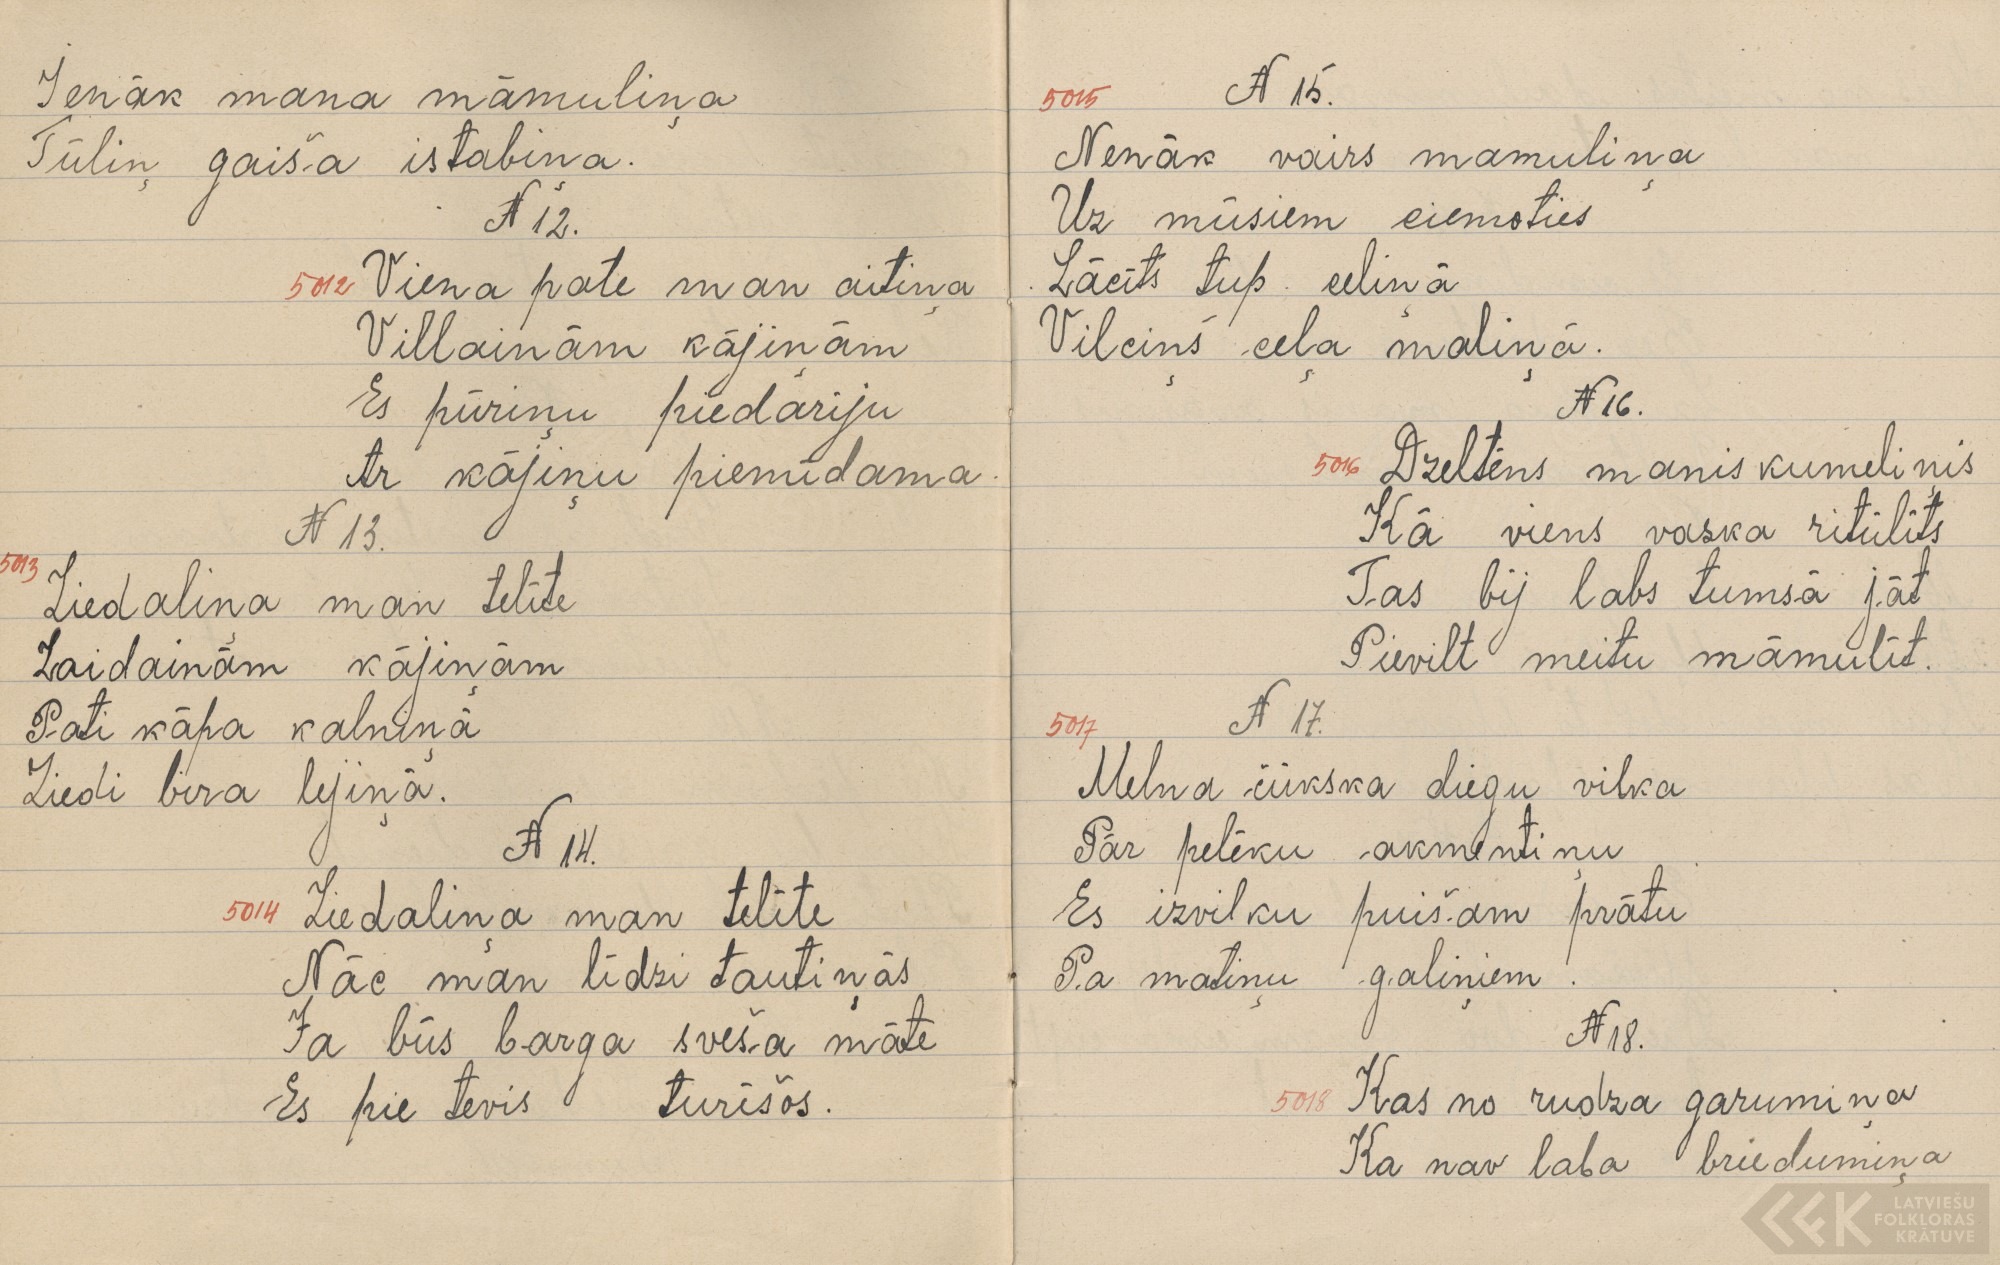 Ienāk mana māmuliņa
Tūliņ gaiša istabiņa.
N 12.
5012 Viena pate man aitiņa
Villainām kājiņām
Es pūriņu piedariju
Ar kājiņu piemīdama.
N 13.
5013
Ziedaliņa man telīte
Zaidainām kājiņām
Pati kāpa kalniņā
Ziedi bira lejiņā.
N 14.
5014 Ziedaliņa man telīte
Nāc man līdzi tautiņās
Ja būs barga sveša māte
Es pie tevis turēšos.
5015 N 15.
Nenāk vairs mamuliņa
Uz mūsiem ciemoties
Lācīts tup celiņā
Vilciņš ceļa maliņā.
N 16.
5016 Dzeltēns manis kumeliņis
Kā viens vaska ritūlīts
Tas bij labs tumsā jāt
Pievilt meitu māmulīt.
5017 N 17.
Melna čūkska diegu vilka
Pār pelēku akmentiņu
Es izvilku puišam prātu
Pa matiņu galiņiem.
N 18.
5018 Kas no rudza garumiņa
Ka nav laba briedumiņa
LATVIEŠU
FOLKLORAS
KRĀTUVE